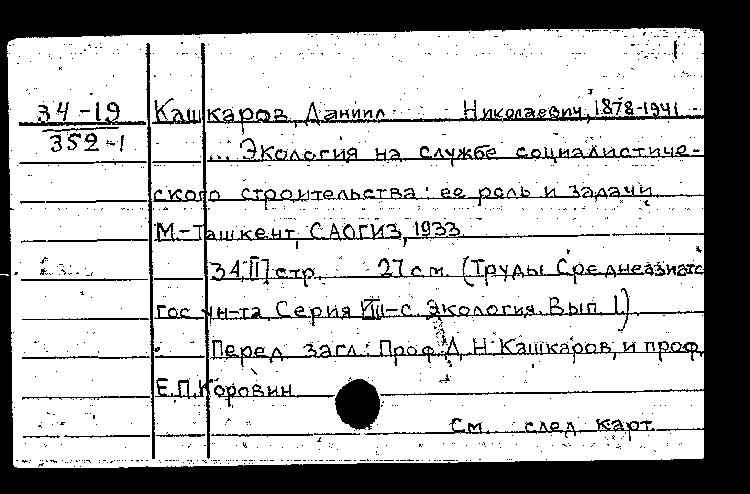 34-19 Кашкаров, Даниил Николаевич, 1878-1941
352-1
... Экология на службе социалистиче-
ского строительства: ее роль и задачи.
М.-Ташкент, САОГИЗ, 1933.
34, II] стр. 27 см. (Труды Среднеазиатс
гос ун-та. Серия VIII-с. Экология. Вып. 1).
Перед загл.: Проф. Д. Н. Кашкаров, и проф.
Е.П. Коровин.
См. след карт.